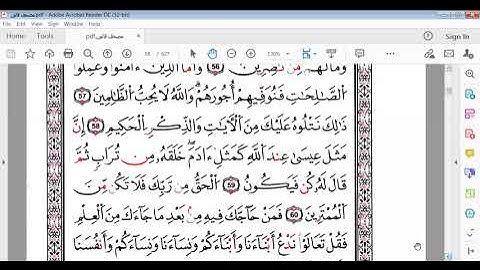 مصحف قالون.pdf - Adobe Acrobat Reader DC (32-bit)
Home Tools مصحف قالون.pdf × Sign In
58 / 627
وَمَا لَهُم مِّن نَّٰصِرِينَ 56 وَأَمَّا الَّذِينَ ءَامَنُوا وَعَمِلُوا
الصَّٰلِحَٰتِ فَنُوَفِّيهِمُ أُجُورَهُمْ وَاللَّهُ لَا يُحِبُّ الظَّٰلِمِينَ 57
ذَٰلِكَ نَتْلُوهُ عَلَيْكَ مِنَ الْأٓيَٰتِ وَالذِّكْرِ الْحَكِيمِ 58 إِنَّ
مَثَلَ عِيسَىٰ عِندَ اللَّهِ كَمَثَلِ ءَادَمَ خَلَقَهُ مِن تُرَابٍ ثُمَّ
قَالَ لَهُ كُن فَيَكُونُ 59 الْحَقُّ مِن رَّبِّكَ فَلَا تَكُن مِّنَ
الْمُمْتَرِينَ 60 فَمَنْ حَاجَّكَ فِيهِ مِنۢ بَعْدِ مَا جَاءَكَ مِنَ الْعِلْمِ
فَقُلْ تَعَالَوْا نَدْعُ أَبْنَاءَنَا وَأَبْنَاءَكُمْ وَنِسَاءَنَا وَنِسَاءَكُمْ وَأَنفُسَنَا